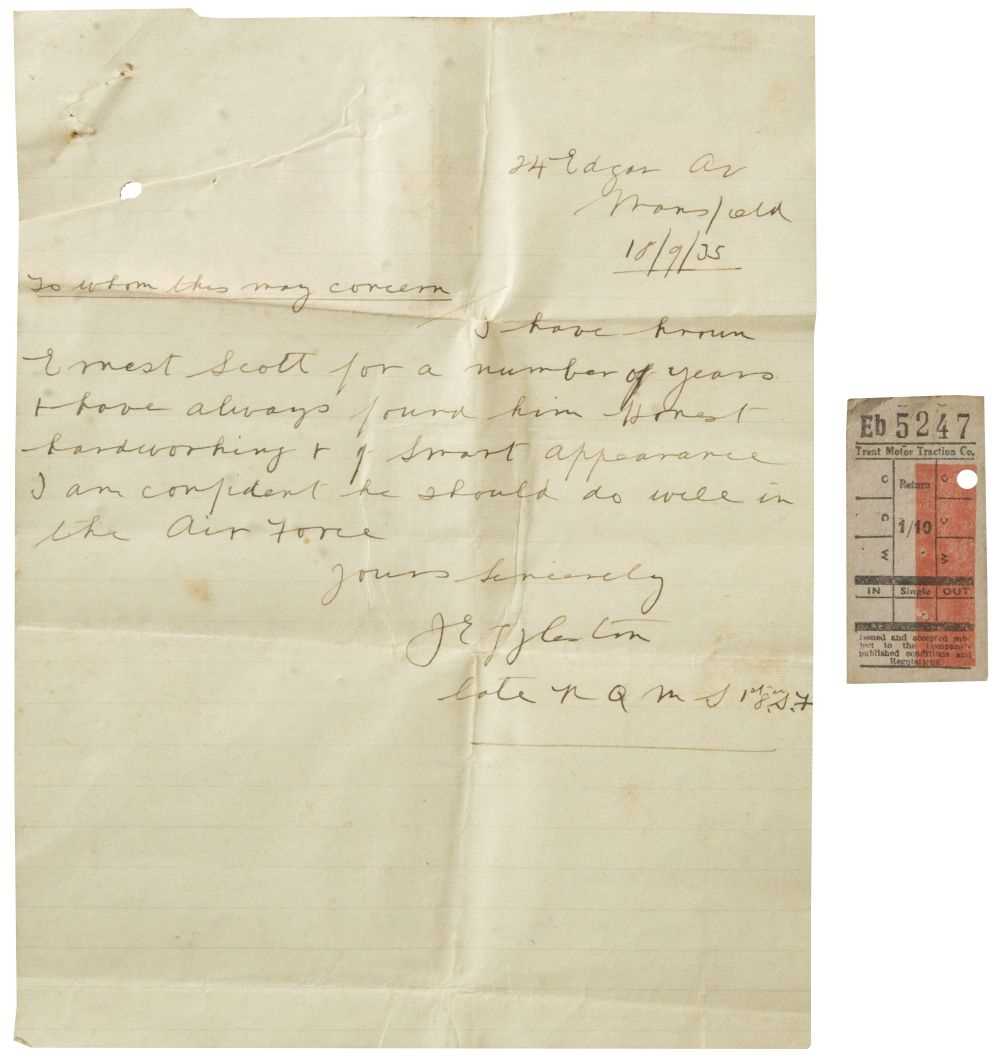 24 Edgar Av
Mansfield
18/9/35
To whom this may concern
I have known
Ernest Scott for a number of years
+ have always found him Honest
hardworking + of smart appearance
I am confident he should do well in
the Air Force
Yours sincerely
J
late R Q M S 1st
Eb 5247
Trent Motor Traction Co.
Return
1/10
IN Single OUT
Issued and accepted sub-
ject to the Company's
published conditions and
Regulations